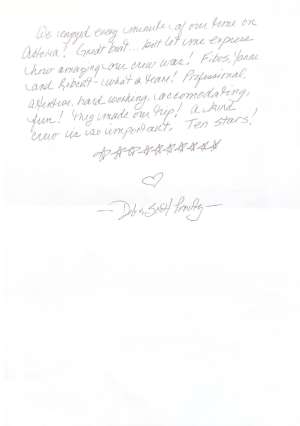 We enjoyed every minute of our time on
! Great boat... but let me express
how amazing our crew was!
and - what a team! Professional,
attentive, hard working, accomodating,
fun! They made our trip! A kind
crew is so important. Ten stars!
☆☆☆☆☆☆☆☆☆☆
♡